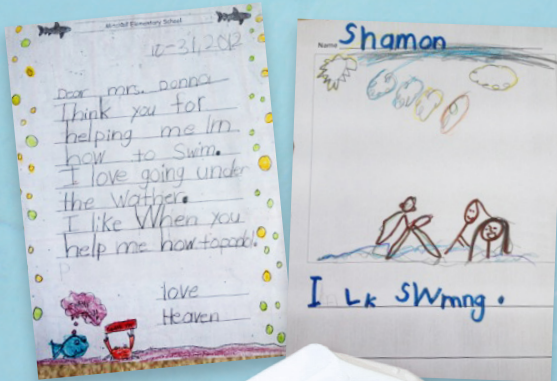 Elementary School
10-31,2012
Dear mrs. Donna
Think you for
helping me lrn
how to Swim.
I love going under
the Wather.
I like When you
help me how topadol.
love
Heaven
Name Shamon
I Lk SWmng .